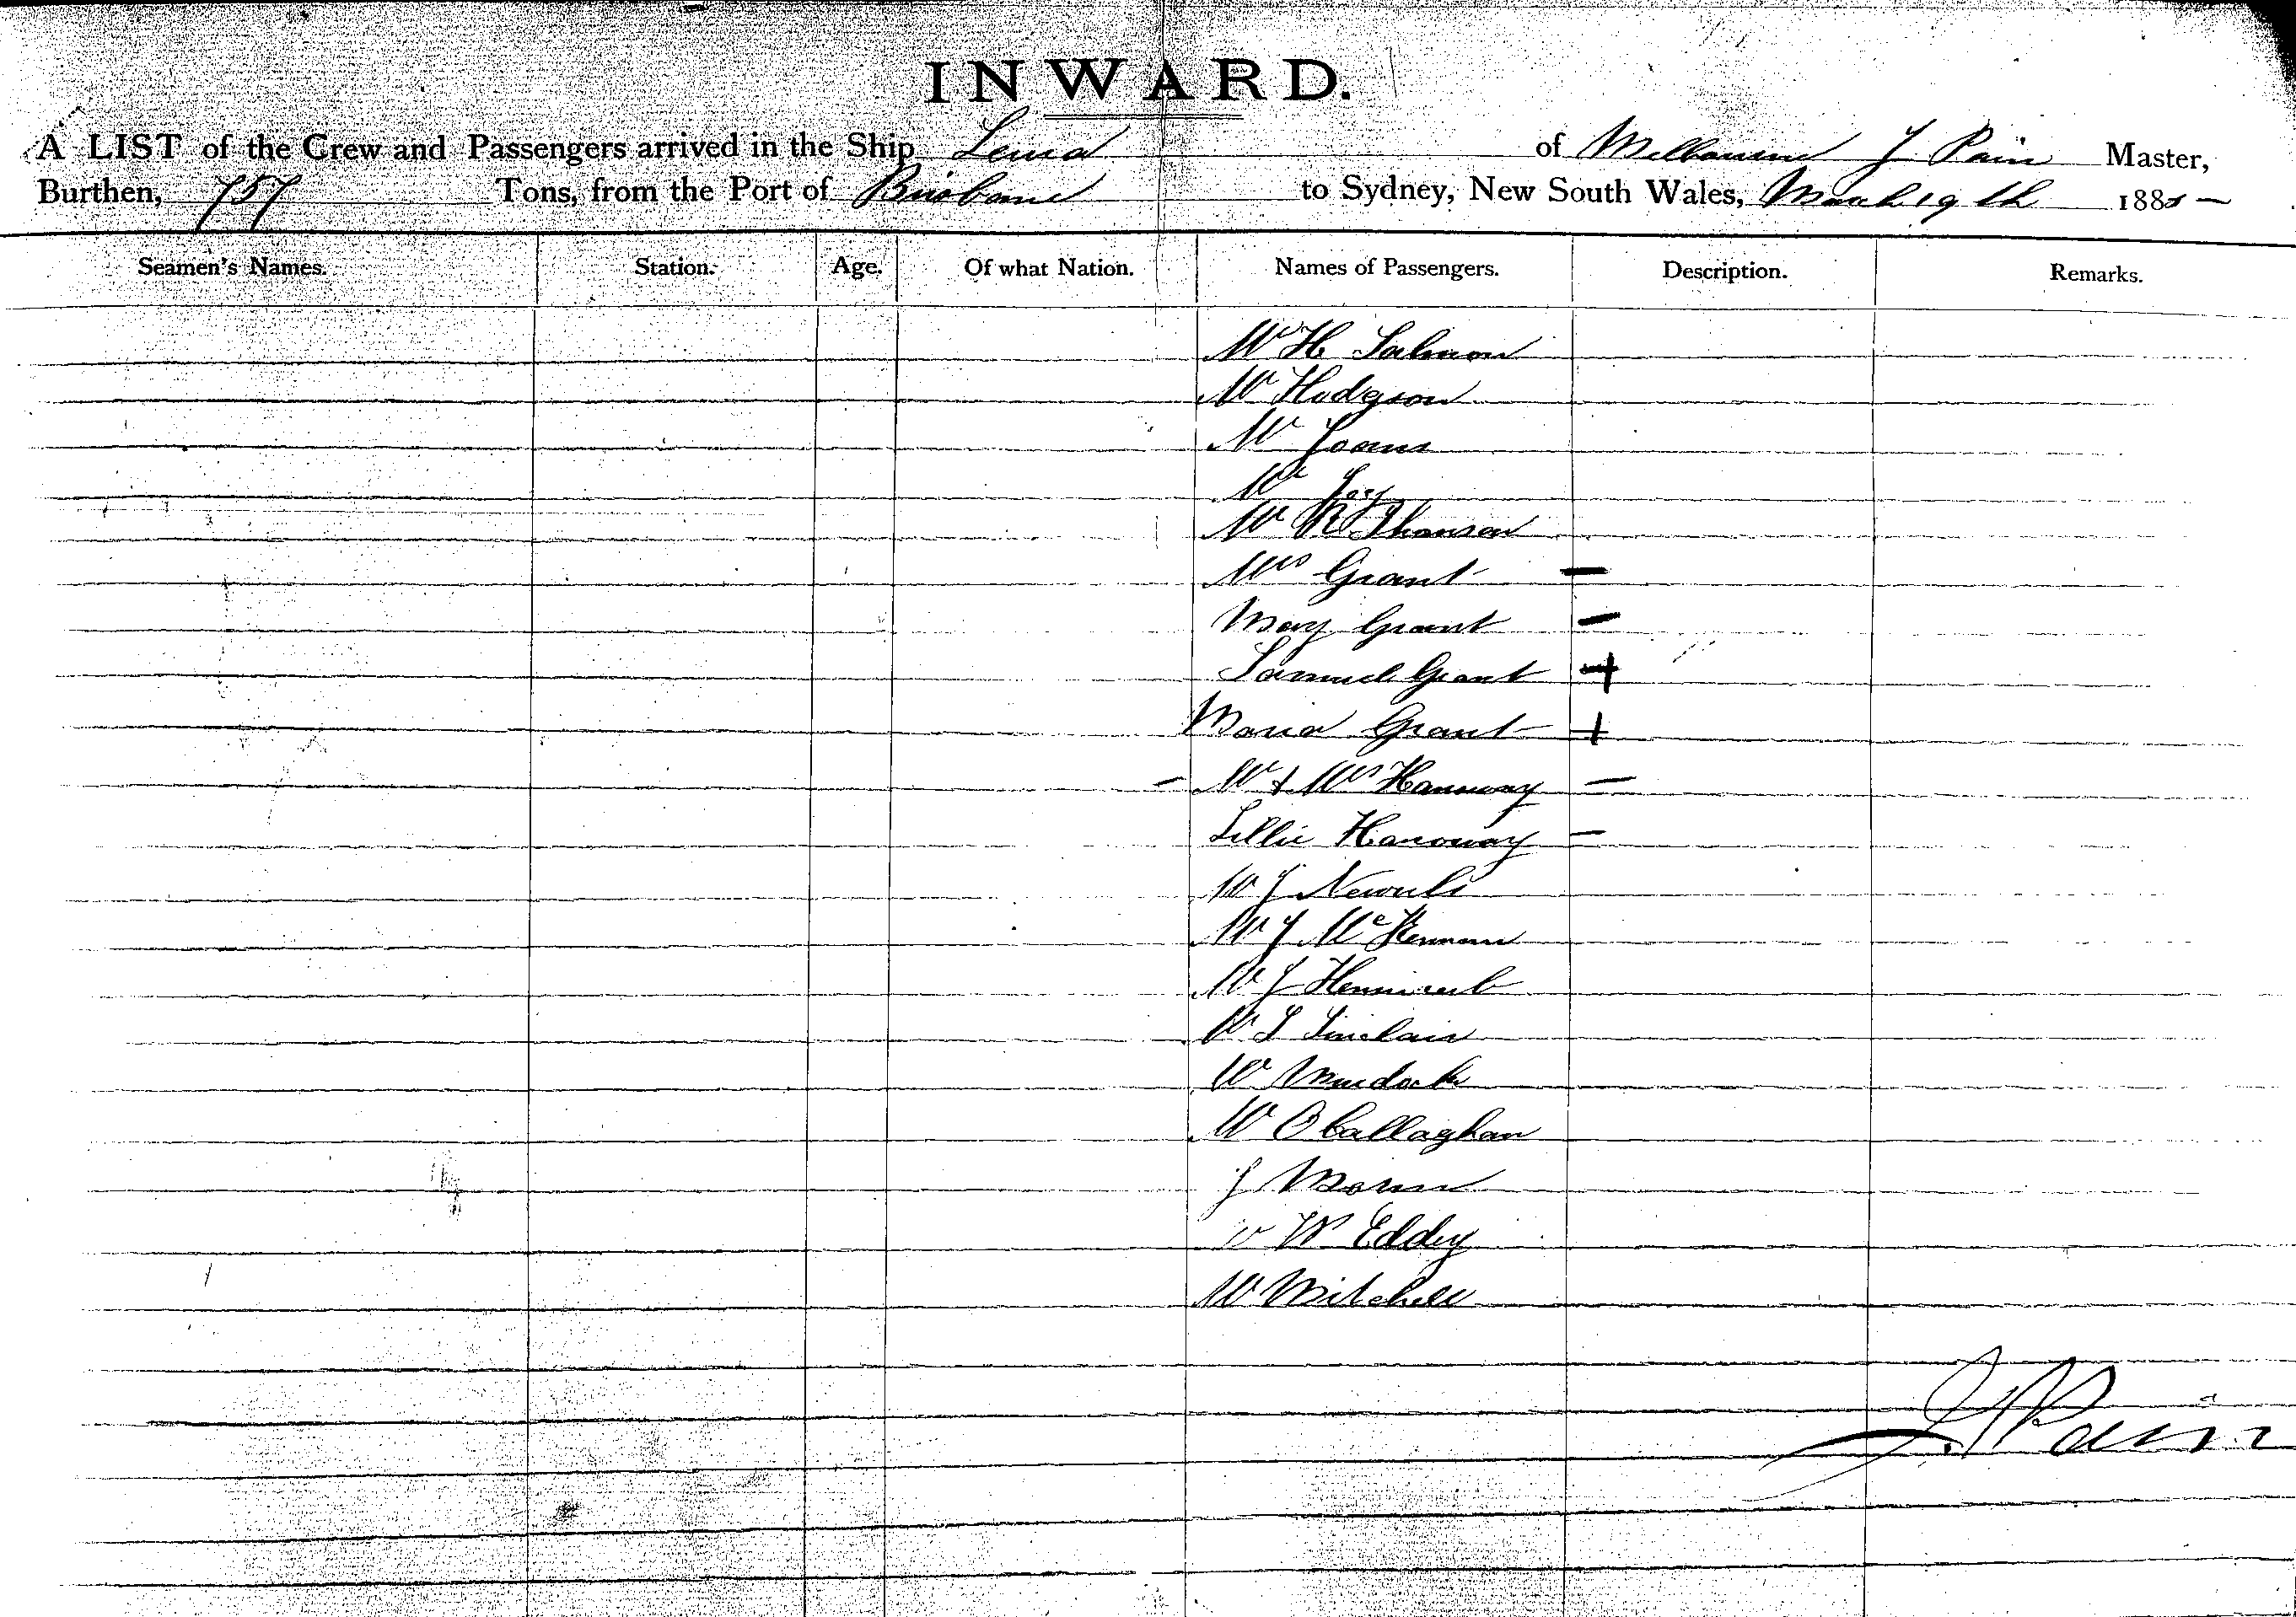 INWARD.
A LIST of the Crew and Passengers arrived in the Ship Leura of Melbourne J Pain Master,
Burthen, 757 Tons, from the Port of Brisbane to Sydney, New South Wales, March 19th 1885
Seamen's Names. Station. Age. Of what Nation. Names of Passengers. Description. Remarks.
Mr H Salmon
Mr Hodgson
Mr
Mr Joy
Mr R Thomson
Mrs Grant
Mary Grant
Samuel Grant
Maria Grant
Mr & Mrs Hannway
Lillie Hanoway
Mr J
Mr J McKennan
Mr J
Mr S Sinclair
Mr Murdock
Mr O Callaghan
J
W Eddy
Mr Mitchell
J. Pain